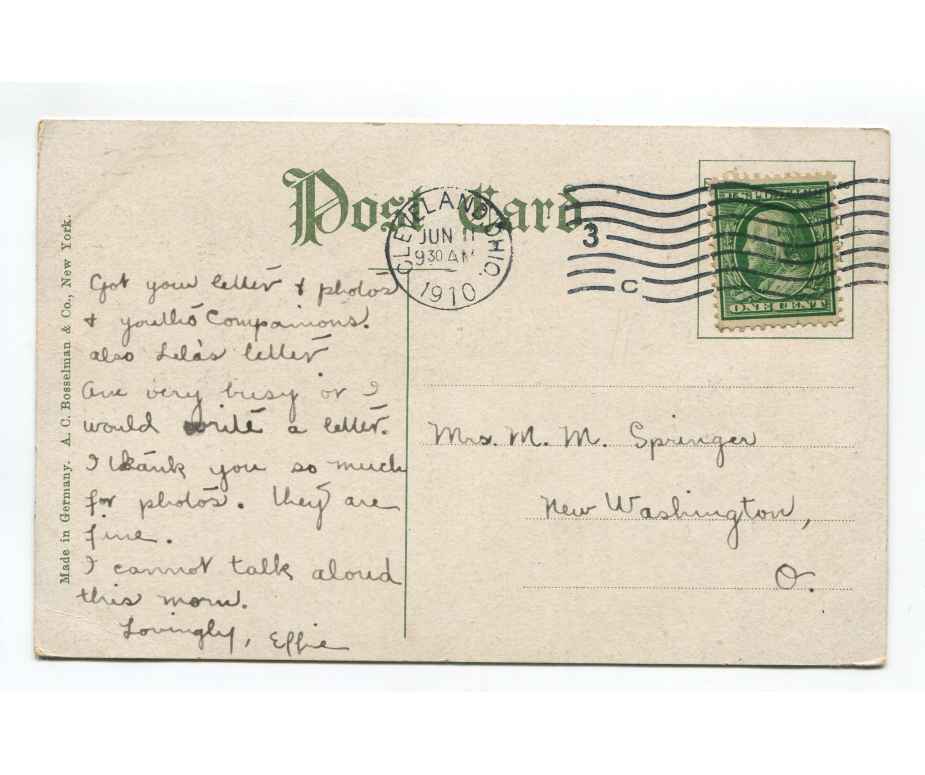 Post Card.
CLEVELAND, OHIO.
JUN 11
9 30 AM
1910
3
C
ONE CENT
Made in Germany. A. C. Bosselman & Co., New York.
Got your letter & photos
& youths Companions.
also Lela's letter
Are very busy or I
would write a letter.
I thank you so much
for photos. They are
fine.
I cannot talk aloud
this morn.
Lovingly, Effie
Mrs. M. M. Springer
New Washington,
O.